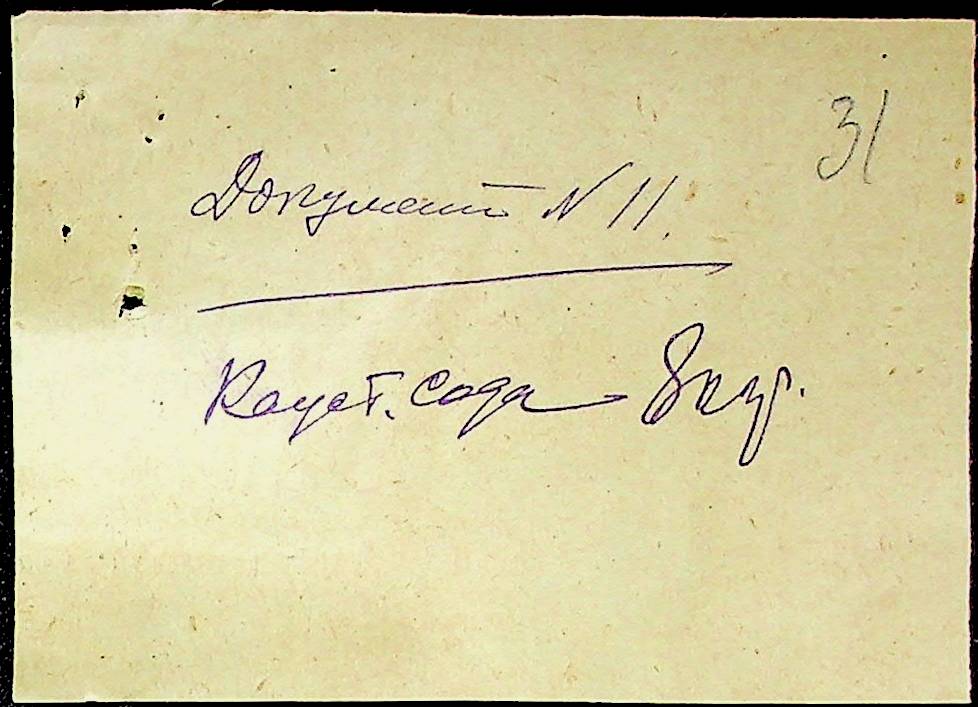 31
Документ N 11.
Кауст. сода 8 кгр.